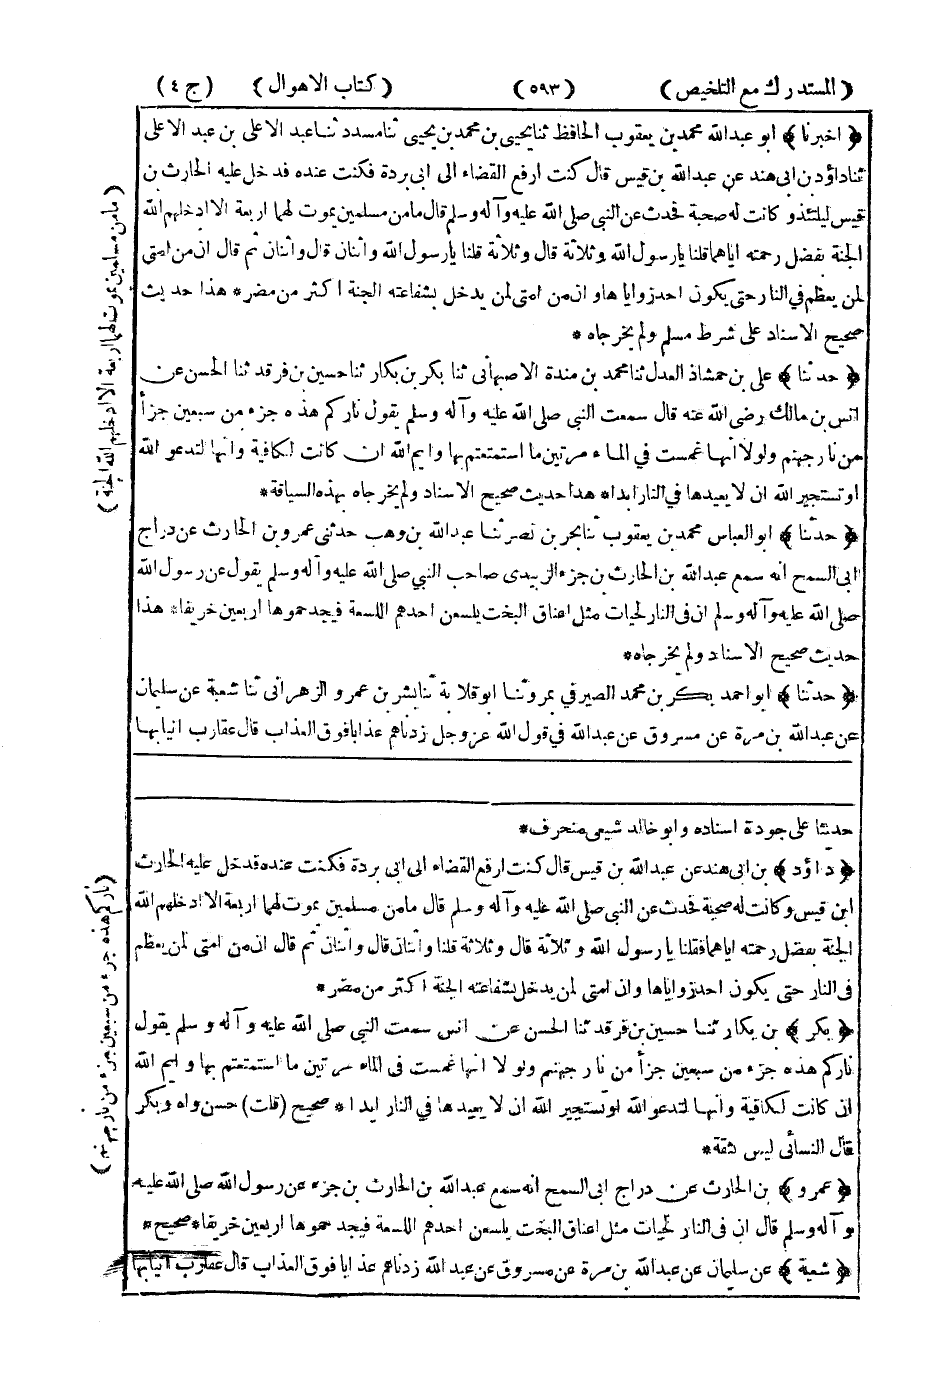 (المستدرك مع التلخيص) (٥٩٣) (كتاب الاهوال) (ج ٤)
﴿ اخبرنا ﴾ ابو عبدالله محمد بن يعقوب الحافظ ثنا يحيى بن محمد بن يحيى ثنا مسدد ثنا عبد الاعلى بن عبد الاعلى
ثنا داؤد بن ابى هند عن عبدالله بن قيس قال كنت ارفع القضاء الى ابى بردة فكنت عنده فدخل عليه الحارث بن
قيس ليلتئذ وكانت له صحبة فحدث عن النبي صلى الله عليه وآله وسلم قال ما من مسلمين يموت لهما اربعة الا ادخلهم الله
الجنة بفضل رحمته اياهما قلنا يا رسول الله وثلاثة قال وثلاثة قلنا يا رسول الله واثنان قال واثنان ثم قال ان من امتى
لمن يعظم في النار حتى يكون احد زواياها وان من امتى لمن يدخل بشفاعته الجنة اكثر من مضر * هذا حديث
صحيح الاسناد على شرط مسلم ولم يخرجاه *
﴿ حدثنا ﴾ على بن حمشاذ العدل ثنا محمد بن مندة الاصبهانى ثنا بكر بن بكار ثنا حسين بن فرقد ثنا الحسن عن
انس بن مالك رضى الله عنه قال سمعت النبي صلى الله عليه وآله وسلم يقول ناركم هذه جزء من سبعين جزأ
من نار جهنم ولولا أنها غمست في الماء مرتين ما استمتعتم بها وايم الله ان كانت لكافية وانها لتدعو الله
او تستجير الله ان لا يعيدها في النار ابدا * هذا حديث صحيح الاسناد ولم يخرجاه بهذه السياقة *
﴿ حدثنا ﴾ ابو العباس محمد بن يعقوب ثنا بحر بن نصر ثنا عبدالله بن وهب حدثنى عمرو بن الحارث عن دراج
ابى السمح انه سمع عبدالله بن الحارث بن جزء الزبيدى صاحب النبي صلى الله عليه وآله وسلم يقول عن رسول الله
صلى الله عليه وآله وسلم ان فى النار لحيات مثل اعناق البخت يلسعن احدهم اللسعة فيجد حموها اربعين خريفا * هذا
حديث صحيح الاسناد ولم يخرجاه *
﴿ حدثنا ﴾ ابو احمد بكر بن محمد الصيرفي بمرو ثنا ابو قلابة ثنا بشر بن عمرو الزهرانى ثنا شعبة عن سليمان
عن عبدالله بن مرة عن مسروق عن عبدالله في قول الله عز وجل زدناهم عذابا فوق العذاب قال عقارب انيابها
حدثنا على جودة اسناده وابو خالد شيعى منحرف *
﴿ داؤد ﴾ بن ابى هند عن عبدالله بن قيس قال كنت ارفع القضاء الى ابى بردة فكنت عنده فدخل عليه الحارث
ابن قيس وكانت له صحبة فحدث عن النبي صلى الله عليه وآله وسلم قال ما من مسلمين يموت لهما اربعة الا ادخلهم الله
الجنة بفضل رحمته اياهما فقلنا يا رسول الله وثلاثة قال وثلاثة قلنا واثنان قال واثنان ثم قال ان من امتى لمن يعظم
فى النار حتى يكون احد زواياها وان امتى لمن يدخل بشفاعته الجنة اكثر من مضر *
﴿ بكر ﴾ بن بكار ثنا حسين بن فرقد ثنا الحسن عن انس سمعت النبي صلى الله عليه وآله وسلم يقول
ناركم هذه جزء من سبعين جزأ من نار جهنم ولولا انها غمست فى الماء مرتين ما استمتعتم بها وايم الله
ان كانت لكافية وانها لتدعو الله او تستجير الله ان لا يعيدها في النار ابدا * صحيح (قلت) حسن واه وبكر
قال النسائى ليس بثقة *
﴿ عمرو ﴾ بن الحارث عن دراج ابى السمح انه سمع عبدالله بن الحارث بن جزء عن رسول الله صلى الله عليه
وآله وسلم قال ان فى النار لحيات مثل اعناق البخت يلسعن احدهم اللسعة فيجد حموها اربعين خريفا * صحيح *
﴿ شعبة ﴾ عن سليمان عن عبدالله بن مرة عن مسروق عن عبدالله زدناهم عذابا فوق العذاب قال عقارب انيابها
(ما من مسلمين يموت لهما اربعة الا ادخلهم الله الجنة)
(ناركم هذه جزء من سبعين جزء من نار جهنم)